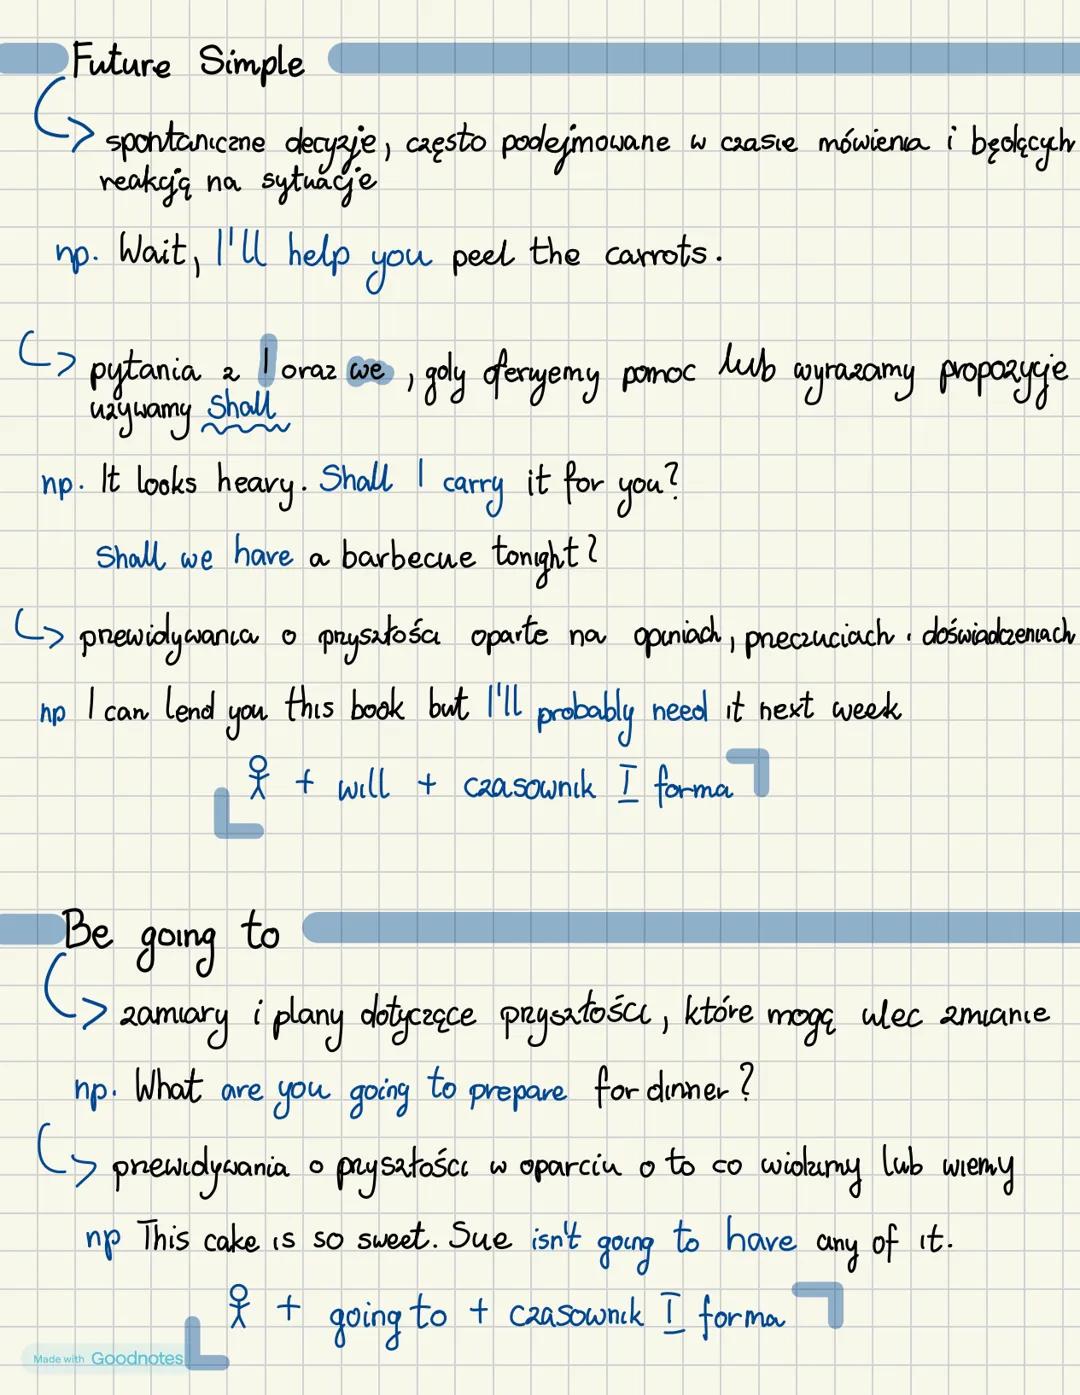 Future Simple
spontaniczne decyzje, często podejmowane w czasie mówienia i będących
reakcją na sytuacje
np. Wait, I'll help you peel the carrots.
pytania z I oraz we, gdy oferujemy pomoc lub wyrażamy propozycje
używamy Shall
np. It looks heavy. Shall I carry it for you?
Shall we have a barbecue tonight?
przewidywania o przyszłości oparte na opiniach, przeczuciach i doświadczeniach
np I can lend you this book but I'll probably need it next week
+ will + czasownik I forma
Be going to
zamiary i plany dotyczące przyszłości, które mogą ulec zmianie
np. What are you going to prepare for dinner?
przewidywania o przyszłości w oparciu o to co widzimy lub wiemy
np This cake is so sweet. Sue isn't going to have any of it.
+ going to + czasownik I forma
Made with Goodnotes